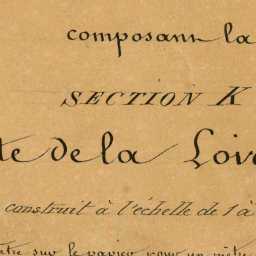 composant la
SECTION K
te de la Loire
construit à l'échelle de 1 à
mètre sur le papier pour un mètre